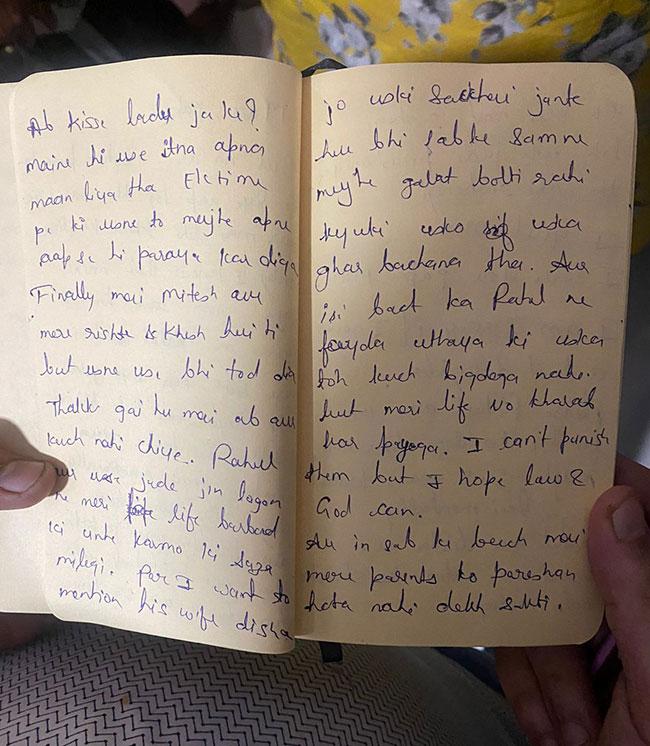 Ab kisse ladu ja ke?
maine hi use itna apna
maan liya tha Ek time
pe ki usne to mujhe apne
aap se hi paraya kar diya
Finally mai Mitesh aur
mere rishte se khush hui hi
but usne use bhi tod dia
Thakk gai hu mai ab aur
kuch nahi chiye. Rahul
aur usse jude jin logon
ne meri life barbad
ki unke karmo ki saza
milegi. Par I want to
mention his wife disha
jo uski sachai jante
hue bhi sabke samne
mujhe galat bolti rahi
kyuki usko sirf uska
ghar bachana tha. Aur
isi baat ka Rahul ne
fayda uthaya ki uska
toh kuch bigdega nahi.
but meri life vo kharab
kar payega. I can't punish
them but I hope law &
God can.
Au in sab ke beech mai
mere parents ko pareshan
hota nahi dekh sakti.